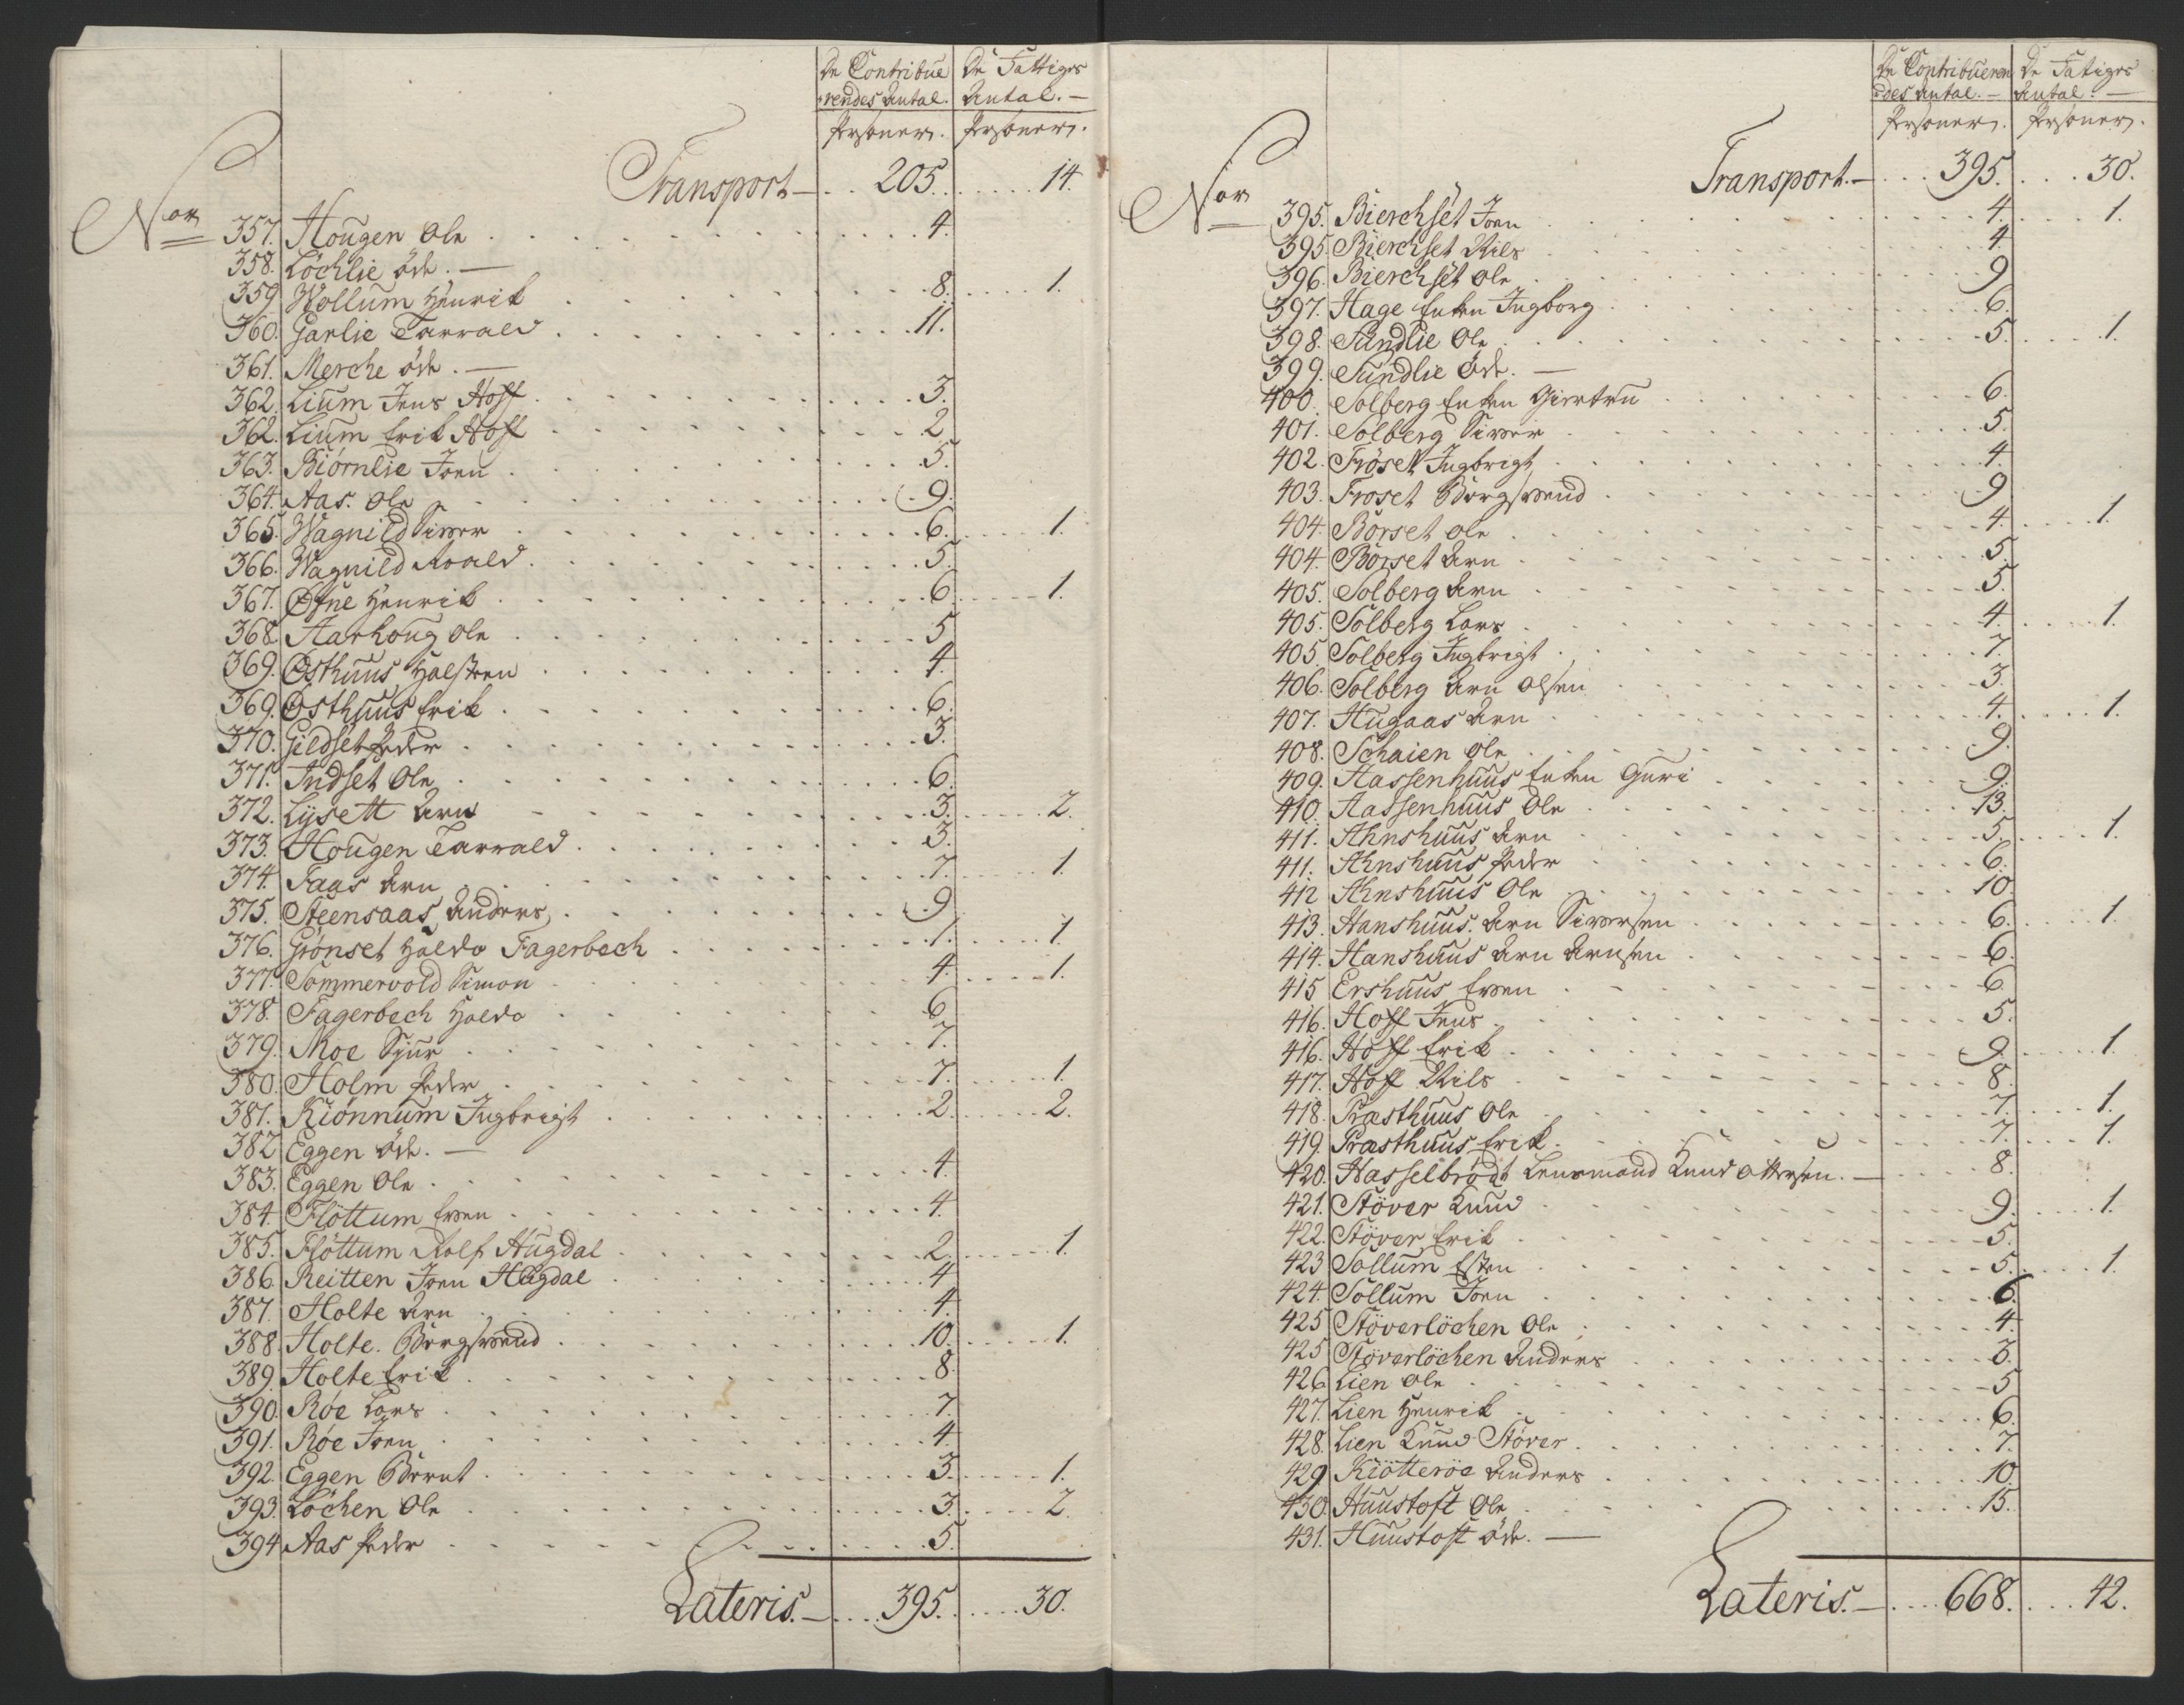 De Contribue De Fattiges
rendes Antal. Antal. —
Personer. Personer.
Transport — 205. 14.
Nor
357. Hougen Ole 4.
358. Löchlie öde. —
359 Wollum Henrik 8. 1.
360. Garlie Tarrald 11.
361. Merche öde. —
362. Lium Jens Hoff 3.
362. Lium Erik Hoff 2
363. Biörnlie Joen 5.
364. Aas. Ole 9.
365. Wagnild Siver 6. 1.
366. Wagnild Roald 5.
367. Øfne Henrik 6 1.
368. Aarhoug Ole 5
369. Østhuus Halsteen 4.
369. Østhuus Erik 6.
370. Gildset Peder 3.
371. Indset Ole 6.
372. Lysett Arn 3. 2.
373. Hougen Tarrald 3.
374. Faas Arn 7. 1.
375. Steensaas Anders 9
376. Grönset Haldo Fagerbech 1. 1.
377. Sommervold Simon 4. 1.
378. Fagerbech Haldo 6.
379. Moe Sjur 7.
380. Holm Peder 7. 1.
381. Kiönnum Ingbrigt 2. 2.
382 Eggen öde. —
383. Eggen Ole 4.
384. Flöttum Even 4.
385. Flöttum Rolf Hugdal 2. 1.
386. Reitten Joen Hugdal 4
387. Holte Arn 4.
388. Holte. Börgsvend 10. 1.
389. Holte Erik 8.
390. Röe Lars 7.
391. Röe Joen 4.
392. Eggen Bernt 3. 1.
393. Löchen Ole 3. 2.
394. Aas Peder 5.
Lateris. — 395. 30.
De Contribueren De Fatiges
des Antal. — Antal. —
Personer. Personer.
Transport. — 395. 30.
Nor
395. Bierchset Joen 4. 1.
395. Bierchset Nils 4
396. Bierchset Ole 9
397. Hage Enken Ingborg 6.
398. Sundlie Ole 5. 1.
399. Sundlie öde. —
400. Solberg Enken Giertru 6.
401. Solberg Siver 5.
402. Fröset Ingbrigt 4.
403. Froset Börgsvend 9
404. Börset Ole 4. 1.
404. Börset Arn 5.
405. Solberg Arn 5.
405. Solberg Lars 4. 1.
405. Solberg Ingbrigt 7.
406. Solberg Arn Olsen 3
407. Hugaas Arn 4. 1.
408. Schaien Ole 9.
409. Aassenhuus Enken Guri 9.
410. Aassenhuus Ole 13.
411. Ahnshuus Arn 5. 1.
411. Ahnshuus Peder 6.
412 Ahnshuus Ole 10.
413. Hanshuus. Arn Siversen 6. 1.
414. Hanshuus Arn Arnsen 6.
415 Ershuus Even 6.
416. Hoff Jens 5.
416. Hoff Erik 9. 1.
417. Hoff Nils 8.
418. Præsthuus Ole 7. 1.
419. Præsthuus Erik 7. 1.
420. Hasselbrödt Lensmand Knud Ottersen. — 8.
421. Stöver Knud 9. 1.
422. Stöver Erik 5.
423 Sollum Esten 5. 1.
424. Sollum Joen 6.
425 Stöverlöchen Ole 4.
425 Stöverlöchen Anders 3.
426. Lien Ole 5
427. Lien Henrik 6.
428. Lien Knud Stöver 7.
429 Kiötteröe Anders 10.
430. Huustoft Ole 15.
431. Huustoft öde. —
Lateris. — 668. 42.